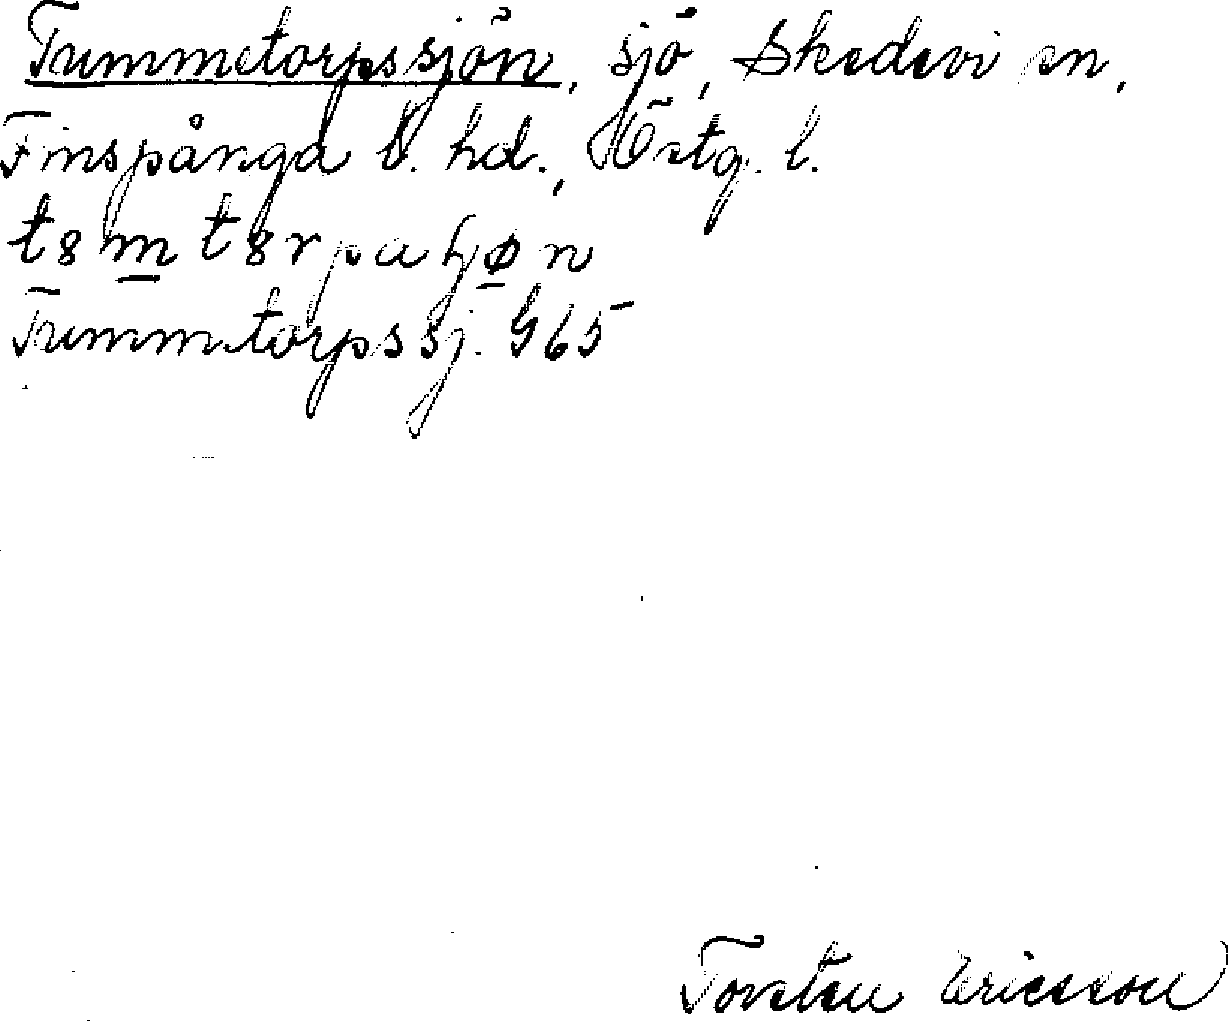 Trummetorpssjön, sjö, Skedevi sn,
Finspånga l. hd., Östg. l.
Trummetorpssj. G65
Torsten Ericsson